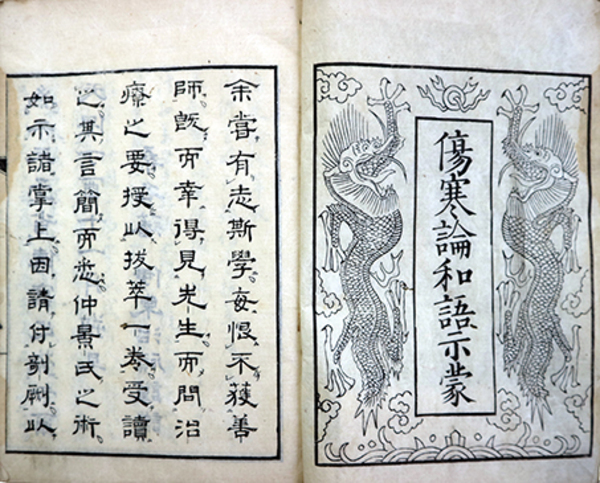 傷寒論和語示蒙
余嘗有志斯學每恨不獲善
師既而幸得見先生而問治
療之要授以拔萃一卷受讀
之其言簡而悉仲景氏之術
如示諸掌上因請付剞劂以